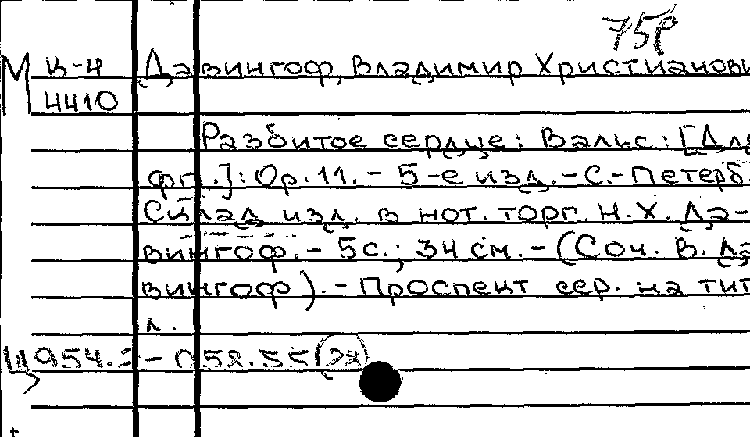 75р
М к-4 Давингоф, Владимир Христианови
4410
Разбитое сердце: Вальс: [Для
фп.]: Ор. 11. - 5-е изд. - С.-Петерб.
Склад изд. в нот. торг. Н. Х. Да-
вингоф. - 5 с.; 34 см. - (Соч. В. Да
вингоф). - Проспект сер. на тит
л.
Ц 954.